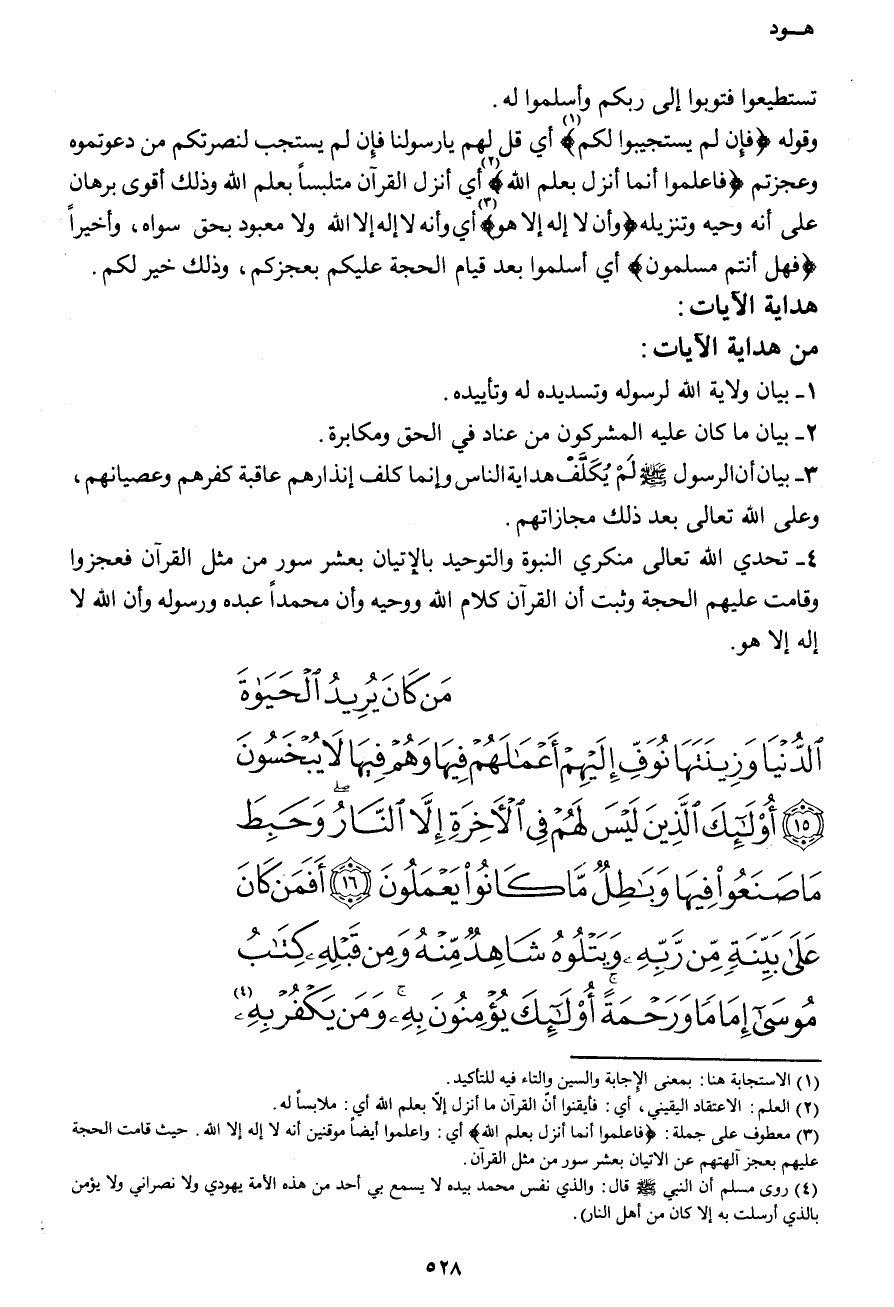 هــود
تستطيعوا فتوبوا إلى ربكم وأسلموا له .
وقوله ﴿فإن لم يستجيبوا لكم﴾(١) أي قل لهم يارسولنا فإن لم يستجب لنصرتكم من دعوتموه
وعجزتم ﴿فاعلموا أنما أنزل بعلم الله﴾(٢) أي أنزل القرآن متلبساً بعلم الله وذلك أقوى برهان
على أنه وحيه وتنزيله ﴿وأن لا إله إلا هو﴾(٣) أي وأنه لا إله إلا الله ولا معبود بحق سواه، وأخيراً
﴿فهل أنتم مسلمون﴾ أي أسلموا بعد قيام الحجة عليكم بعجزكم، وذلك خير لكم .
هداية الآيات :
من هداية الآيات :
١ـ بيان ولاية الله لرسوله وتسديده له وتأييده .
٢ـ بيان ما كان عليه المشركون من عناد في الحق ومكابرة .
٣ـ بيان أن الرسول ﷺ لَمْ يُكَلَّفْ هداية الناس وإنما كلف إنذارهم عاقبة كفرهم وعصيانهم،
وعلى الله تعالى بعد ذلك مجازاتهم .
٤ـ تحدي الله تعالى منكري النبوة والتوحيد بالإتيان بعشر سور من مثل القرآن فعجزوا
وقامت عليهم الحجة وثبت أن القرآن كلام الله ووحيه وأن محمداً عبده ورسوله وأن الله لا
إله إلا هو.
مَن كَانَ يُرِيدُ ٱلْحَيَوٰةَ
ٱلدُّنْيَا وَزِينَتَهَا نُوَفِّ إِلَيْهِمْ أَعْمَٰلَهُمْ فِيهَا وَهُمْ فِيهَا لَا يُبْخَسُونَ
﴿١٥﴾ أُوْلَٰٓئِكَ ٱلَّذِينَ لَيْسَ لَهُمْ فِى ٱلْأَخِرَةِ إِلَّا ٱلنَّارُ ۖ وَحَبِطَ
مَا صَنَعُوا۟ فِيهَا وَبَٰطِلٌ مَّا كَانُوا۟ يَعْمَلُونَ ﴿١٦﴾ أَفَمَن كَانَ
عَلَىٰ بَيِّنَةٍ مِّن رَّبِّهِۦ وَيَتْلُوهُ شَاهِدٌ مِّنْهُ وَمِن قَبْلِهِۦ كِتَٰبُ
مُوسَىٰٓ إِمَامًا وَرَحْمَةً ۚ أُوْلَٰٓئِكَ يُؤْمِنُونَ بِهِۦ ۚ وَمَن يَكْفُرْ بِهِۦ (٤)
(١) الاستجابة هنا: بمعنى الإجابة والسين والتاء فيه للتأكيد .
(٢) العلم: الاعتقاد اليقيني، أي: فأيقنوا أنّ القرآن ما أنزل إلّا بعلم الله أي: ملابساً له .
(٣) معطوف على جملة: ﴿فاعلموا أنما أنزل بعلم الله﴾ أي: واعلموا أيضاً موقنين أنه لا إله إلا الله . حيث قامت الحجة
عليهم بعجز آلهتهم عن الاتيان بعشر سور من مثل القرآن .
(٤) روى مسلم أن النبي ﷺ قال: والذي نفس محمد بيده لا يسمع بي أحد من هذه الأمة يهودي ولا نصراني ولا يؤمن
بالذي أرسلت به إلا كان من أهل النار) .
٥٢٨